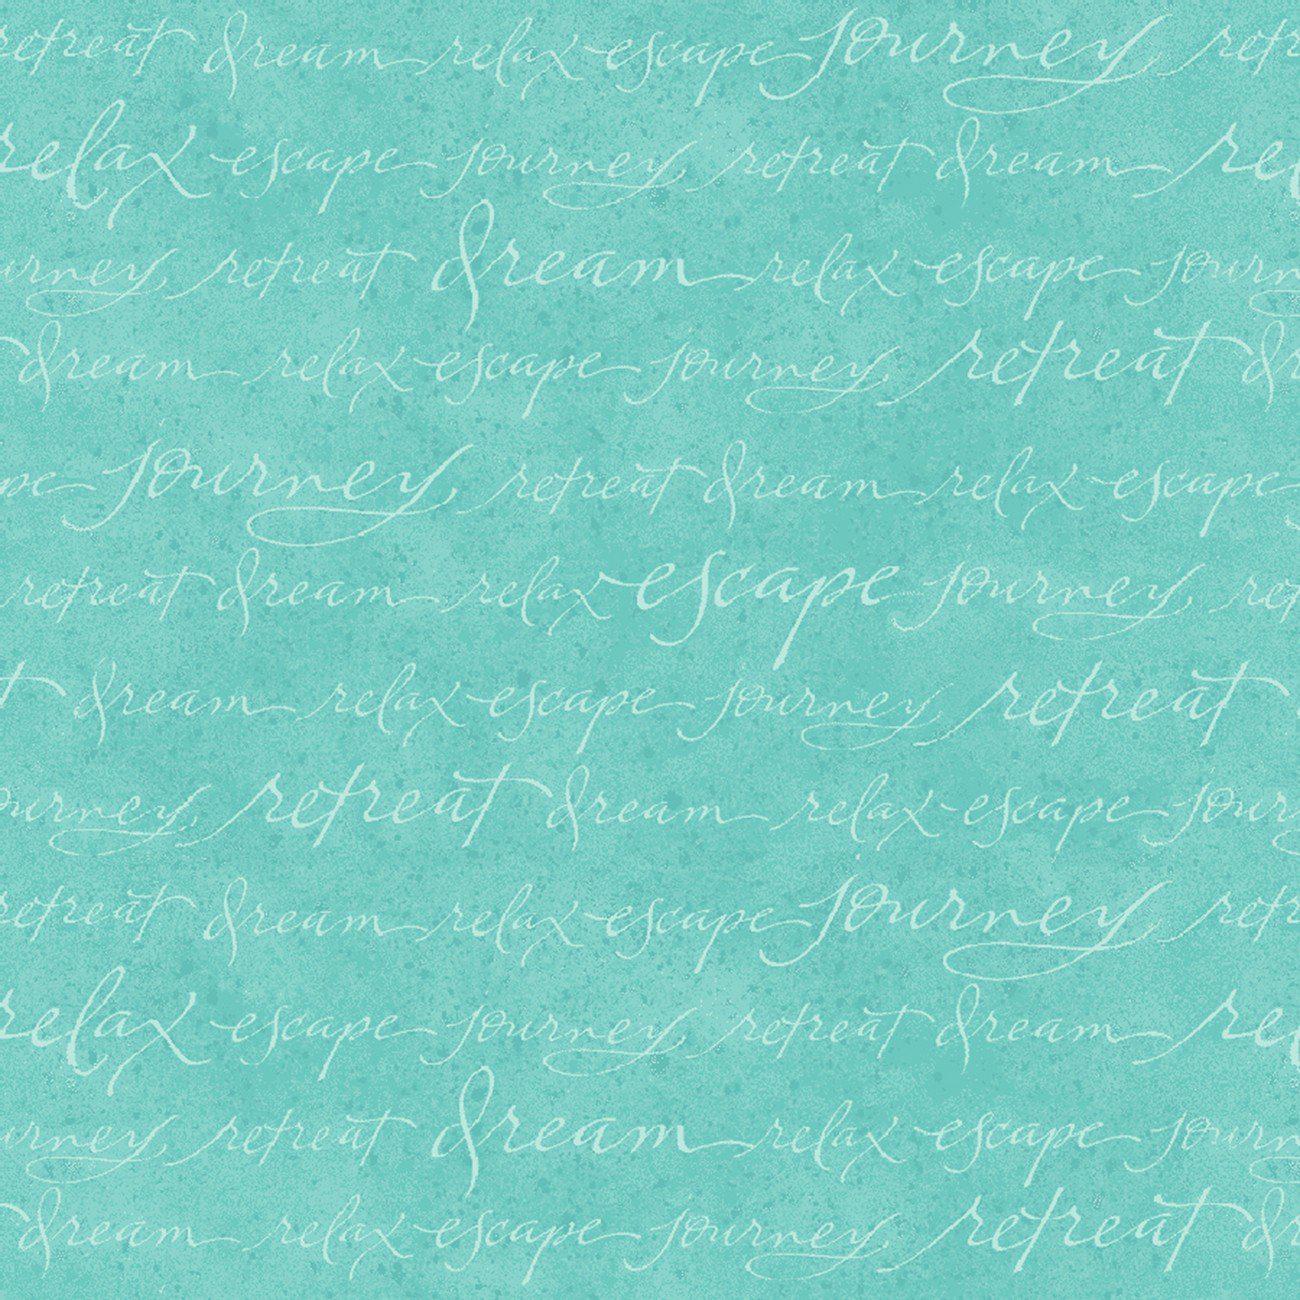 retreat dream relax escape journey retr
relax escape journey retreat dream rel
urney retreat dream relax escape journ
dream relax escape journey retreat dr
pe journey retreat dream relax escape
retreat dream relax escape journey ret
t dream relax escape journey retreat
ourney retreat dream relax escape jour
retreat dream relax escape journey retr
relax escape journey retreat dream rel
urney retreat dream relax escape journ
dream relax escape journey retreat dr